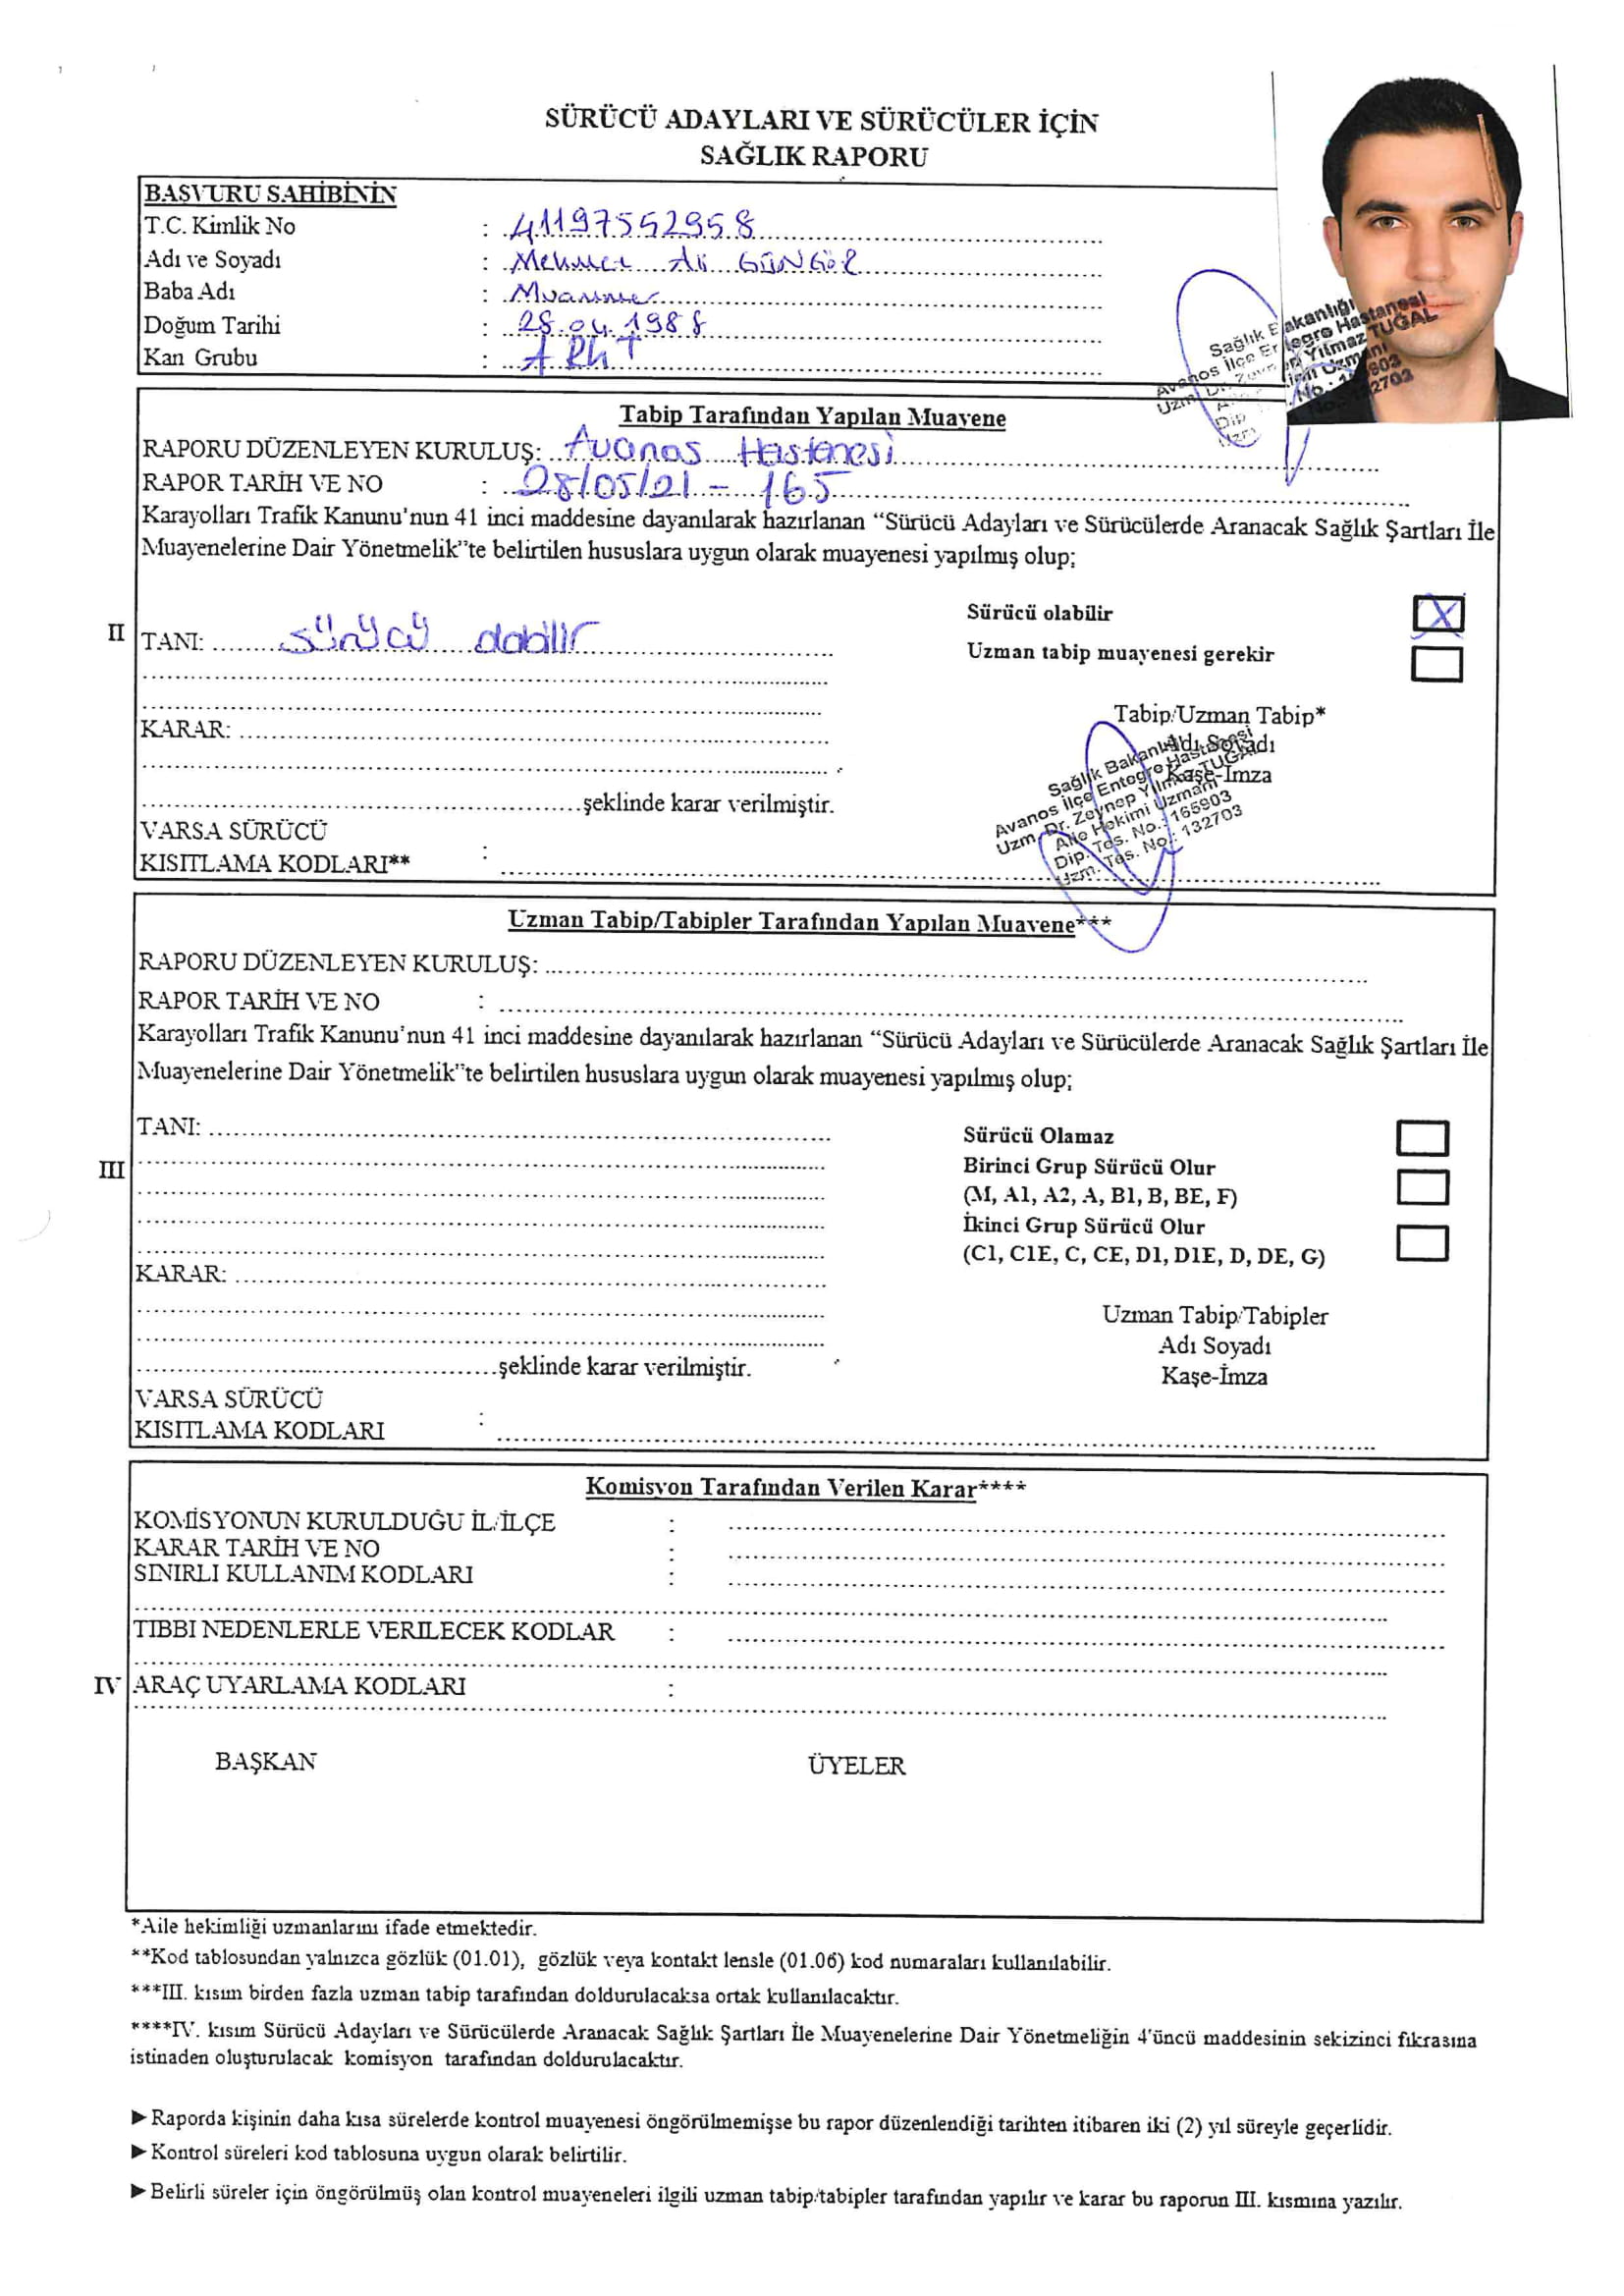 SÜRÜCÜ ADAYLARI VE SÜRÜCÜLER İÇİN
SAĞLIK RAPORU
BAŞVURU SAHİBİNİN
T.C. Kimlik No : 41197552958
Adı ve Soyadı : Mehmet Ali GÜNGÖR
Baba Adı : Muammer
Doğum Tarihi : 28.04.1988
Kan Grubu : A Rh +
Sağlık Bakanlığı
Avanos İlçe Entegre Hastanesi
Uzm. Dr. Zeynep Yılmaz TUĞAL
Tabip Tarafından Yapılan Muayene
RAPORU DÜZENLEYEN KURULUŞ: Avanos Hastanesi
RAPOR TARİH VE NO : 28/05/21 - 165
Karayolları Trafik Kanunu'nun 41 inci maddesine dayanılarak hazırlanan “Sürücü Adayları ve Sürücülerde Aranacak Sağlık Şartları İle
Muayenelerine Dair Yönetmelik”te belirtilen hususlara uygun olarak muayenesi yapılmış olup;
Sürücü olabilir X
II TANI: sürücü olabilir
Uzman tabip muayenesi gerekir
Tabip/Uzman Tabip*
Adı Soyadı
Kaşe-İmza
KARAR:
şeklinde karar verilmiştir.
Sağlık Bakanlığı
Avanos İlçe Entegre Hastanesi
Uzm. Dr. Zeynep Yılmaz TUĞAL
Aile Hekimi Uzmanı
Dip. Tes. No.: 165903
Uzm. Tes. No.: 132703
VARSA SÜRÜCÜ
KISITLAMA KODLARI** :
Uzman Tabip/Tabipler Tarafından Yapılan Muayene***
RAPORU DÜZENLEYEN KURULUŞ:
RAPOR TARİH VE NO :
Karayolları Trafik Kanunu'nun 41 inci maddesine dayanılarak hazırlanan “Sürücü Adayları ve Sürücülerde Aranacak Sağlık Şartları İle
Muayenelerine Dair Yönetmelik”te belirtilen hususlara uygun olarak muayenesi yapılmış olup;
TANI:
Sürücü Olamaz
III
Birinci Grup Sürücü Olur
(M, A1, A2, A, B1, B, BE, F)
İkinci Grup Sürücü Olur
(C1, C1E, C, CE, D1, D1E, D, DE, G)
KARAR:
Uzman Tabip/Tabipler
Adı Soyadı
Kaşe-İmza
şeklinde karar verilmiştir.
VARSA SÜRÜCÜ
KISITLAMA KODLARI :
Komisyon Tarafından Verilen Karar****
KOMİSYONUN KURULDUĞU İL/İLÇE :
KARAR TARİH VE NO :
SINIRLI KULLANIM KODLARI :
TIBBI NEDENLERLE VERILECEK KODLAR :
IV ARAÇ UYARLAMA KODLARI :
BAŞKAN ÜYELER
*Aile hekimliği uzmanlarını ifade etmektedir.
**Kod tablosundan yalnızca gözlük (01.01), gözlük veya kontakt lensle (01.06) kod numaraları kullanılabilir.
***III. kısım birden fazla uzman tabip tarafından doldurulacaksa ortak kullanılacaktır.
****IV. kısım Sürücü Adayları ve Sürücülerde Aranacak Sağlık Şartları İle Muayenelerine Dair Yönetmeliğin 4'üncü maddesinin sekizinci fıkrasına
istinaden oluşturulacak komisyon tarafından doldurulacaktır.
►Raporda kişinin daha kısa sürelerde kontrol muayenesi öngörülmemişse bu rapor düzenlendiği tarihten itibaren iki (2) yıl süreyle geçerlidir.
►Kontrol süreleri kod tablosuna uygun olarak belirtilir.
►Belirli süreler için öngörülmüş olan kontrol muayeneleri ilgili uzman tabip/tabipler tarafından yapılır ve karar bu raporun III. kısmına yazılır.